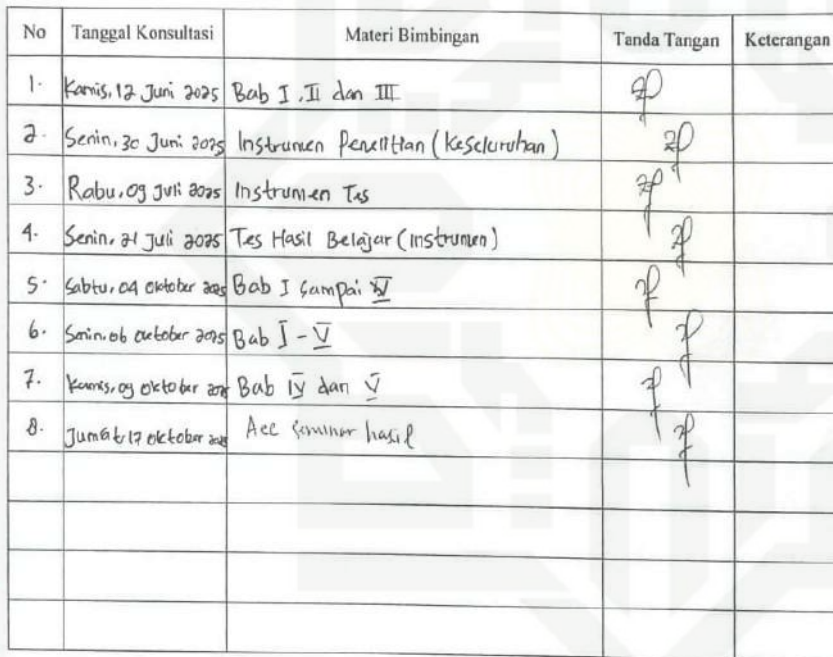 No Tanggal Konsultasi Materi Bimbingan Tanda Tangan Keterangan
1. Kamis, 12 Juni 2025 Bab I, II dan III
2. Senin, 30 Juni 2025 Instrumen Penelitian (Keseluruhan)
3. Rabu, 09 Juli 2025 Instrumen Tes
4. Senin, 21 Juli 2025 Tes Hasil Belajar (Instrumen)
5. Sabtu, 04 Oktober 2025 Bab I Sampai
6. Senin, 06 Oktober 2025 Bab I - V
7. Kamis, 09 Oktober 2025 Bab IV dan V
8. Jumat, 17 Oktober 2025 Acc Seminar hasil